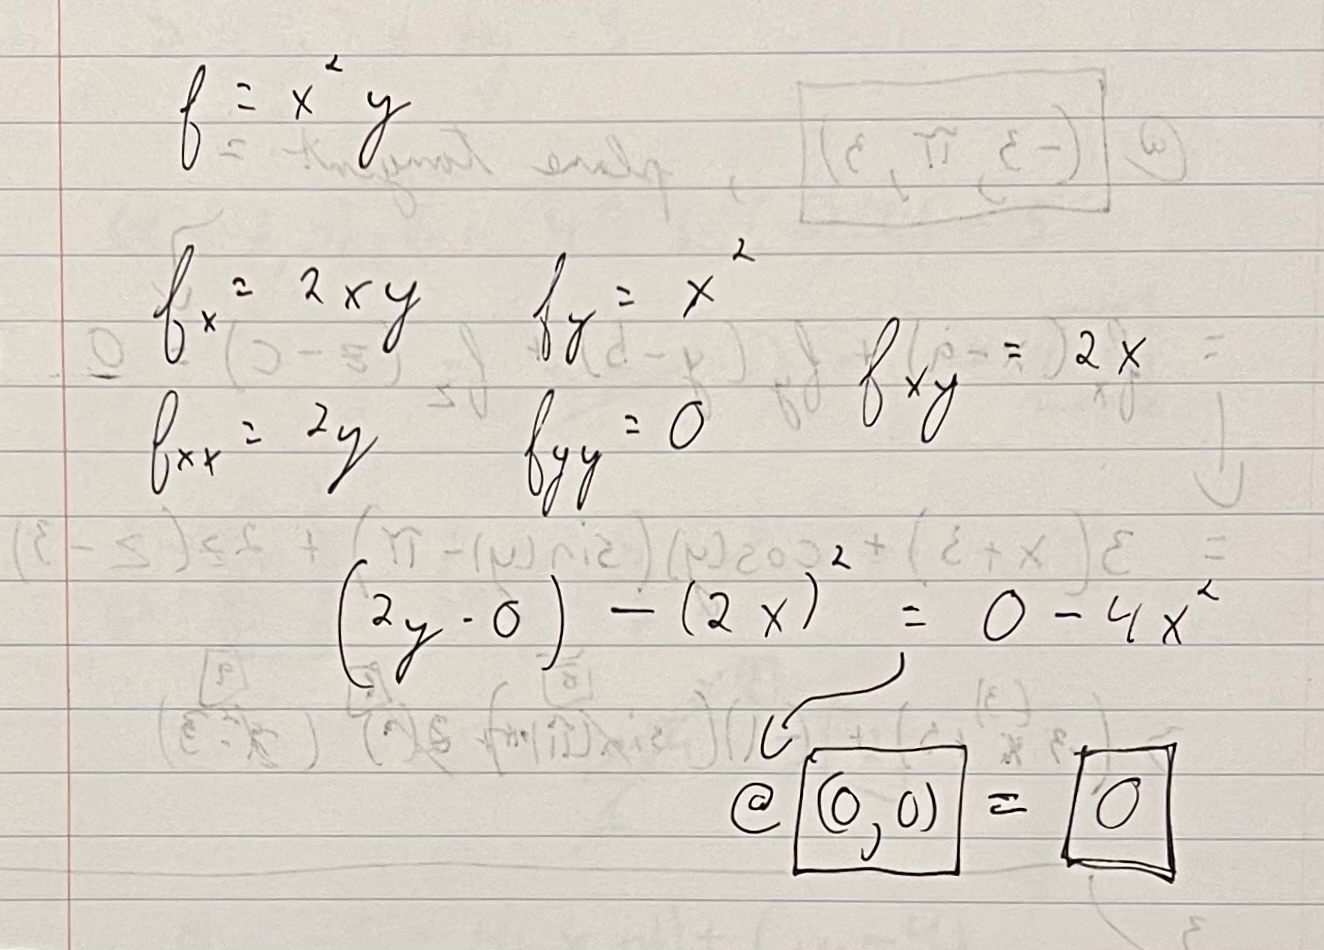 f = x² y
f_x = 2xy    f_y = x²
f_xy = 2x
f_xx = 2y    f_yy = 0
(2y · 0) − (2x)² = 0 − 4x²
@ (0,0) = 0